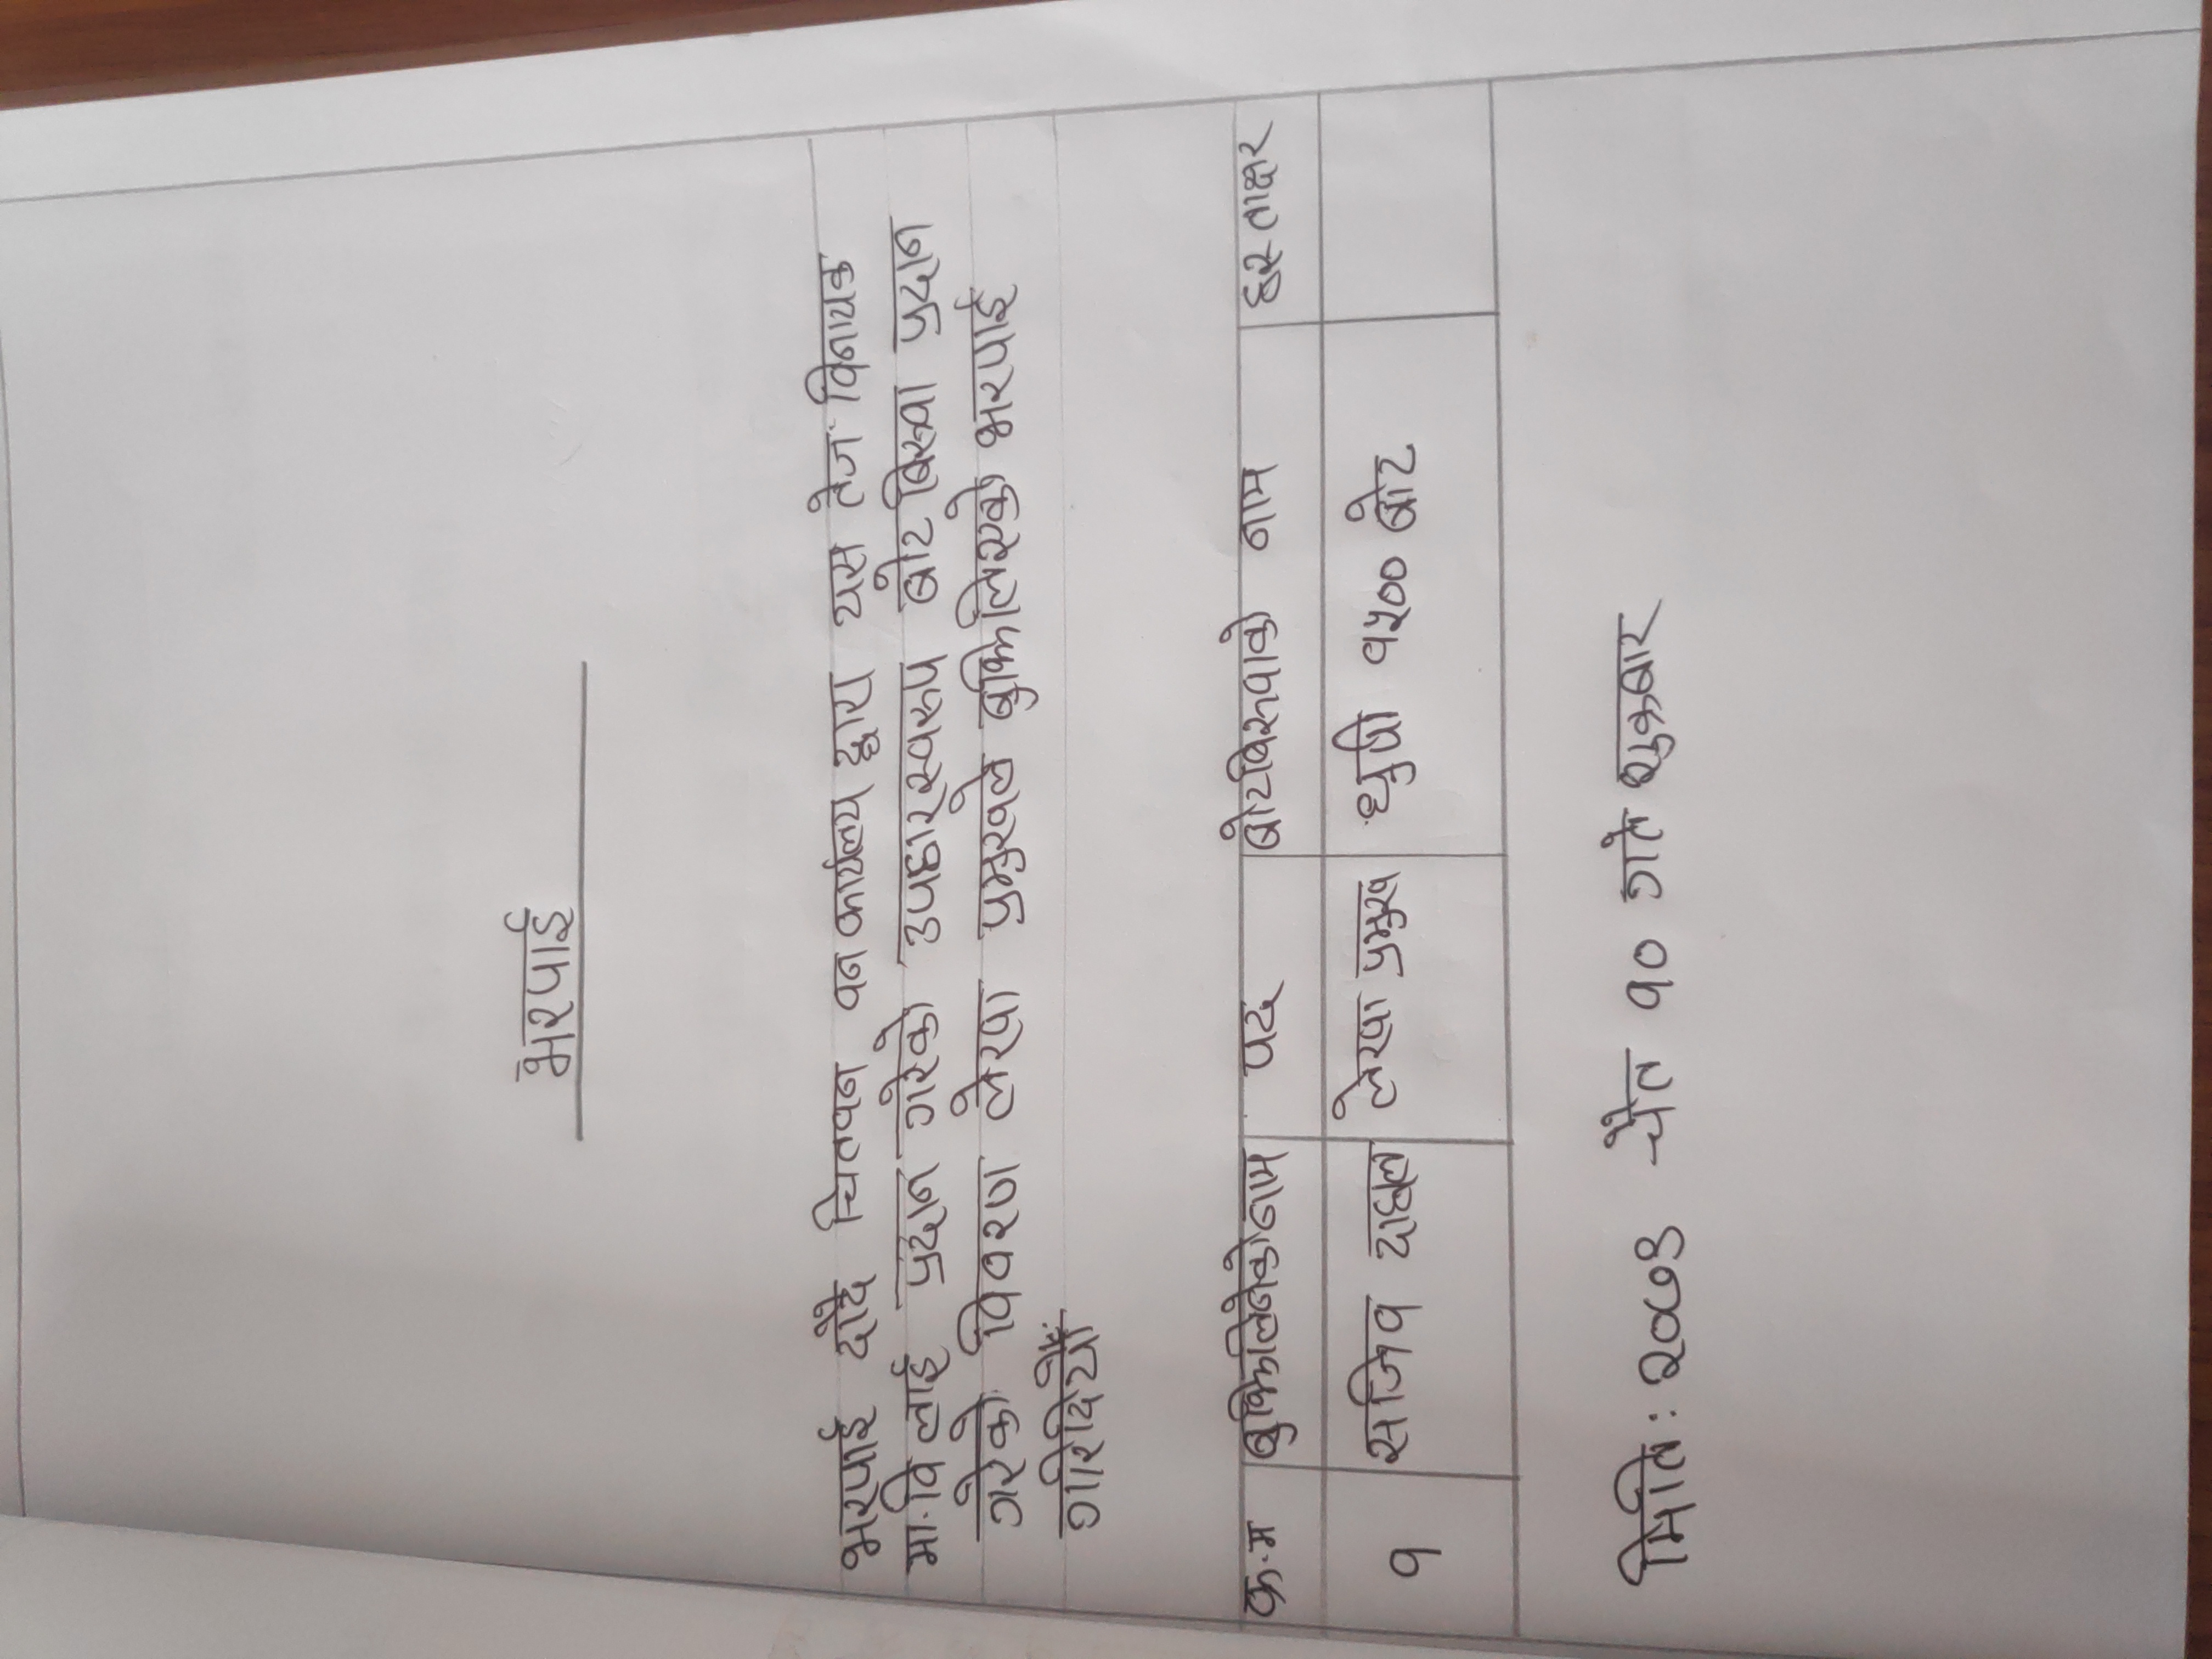 भरपाई
भरपाई दादै चितवन वन कार्यलय द्वारा यस तेज विनायक
मा.वि लाई प्रदान गरेको उपहारस्वरुप बोट बिरुवा प्रदान
गरेको विवरण लेखा प्रमुखले बुझिलिएको भरपाई
गरिदियौं
क्र.म बुझिलिनेको नाम पद बोटविरुवाको नाम हस्ताक्षर
१ सजिव दाहाल लेखा प्रमुख धुपी १५०० बोट
मिति: २०७९ चैत १० गते शुक्रबार